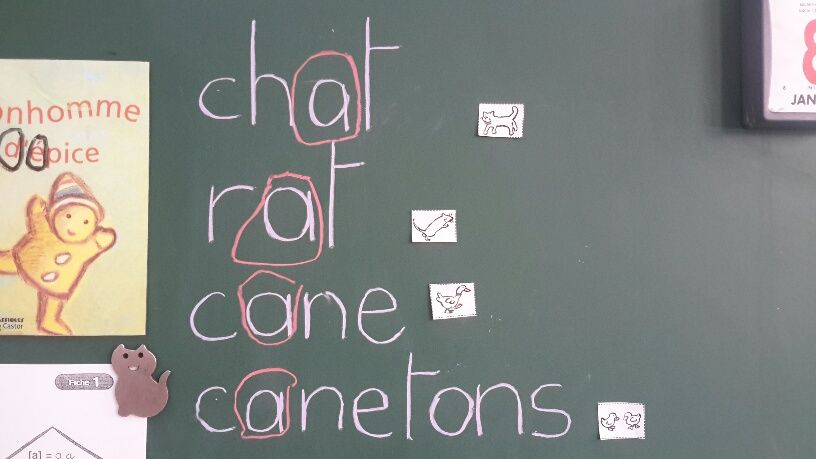 chat
rat
cane
canetons
onhomme
d'épice
Castor
Fiche 1
[a] = a a
8
JAN